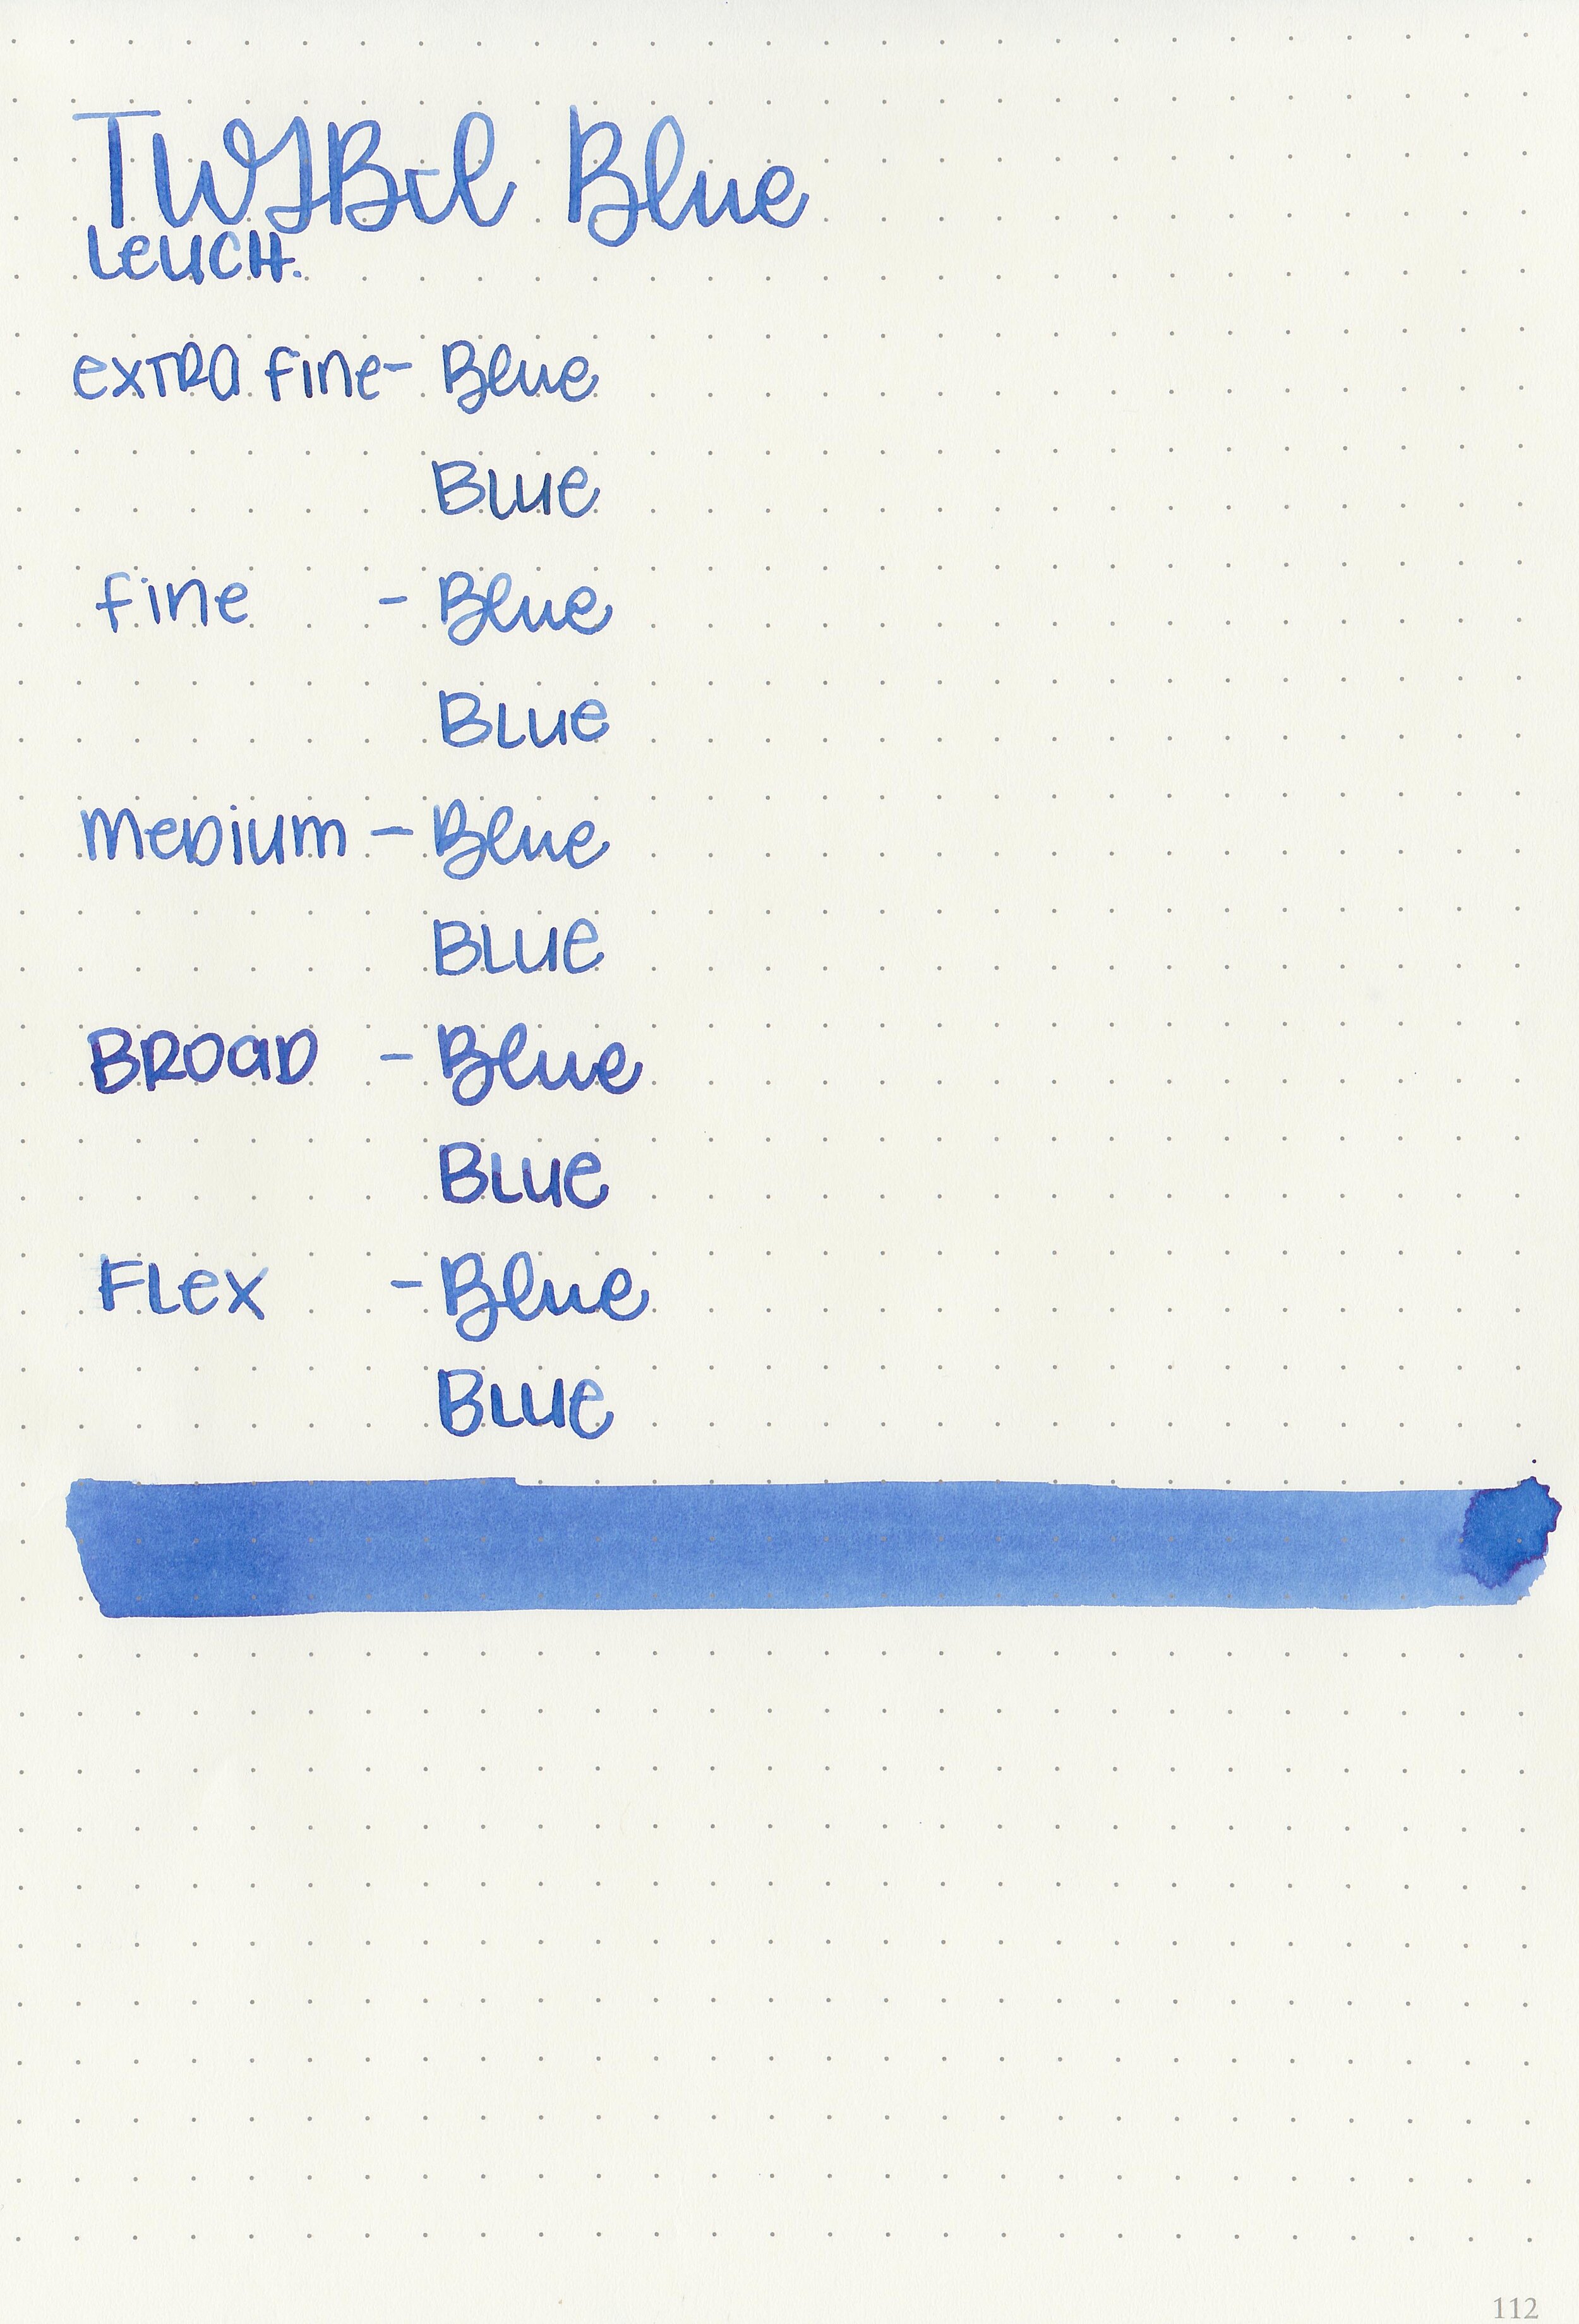 TWSBI Blue
Leuch.
extra fine - Blue
Blue
fine - Blue
Blue
Medium - Blue
Blue
Broad - Blue
Blue
Flex - Blue
Blue
112